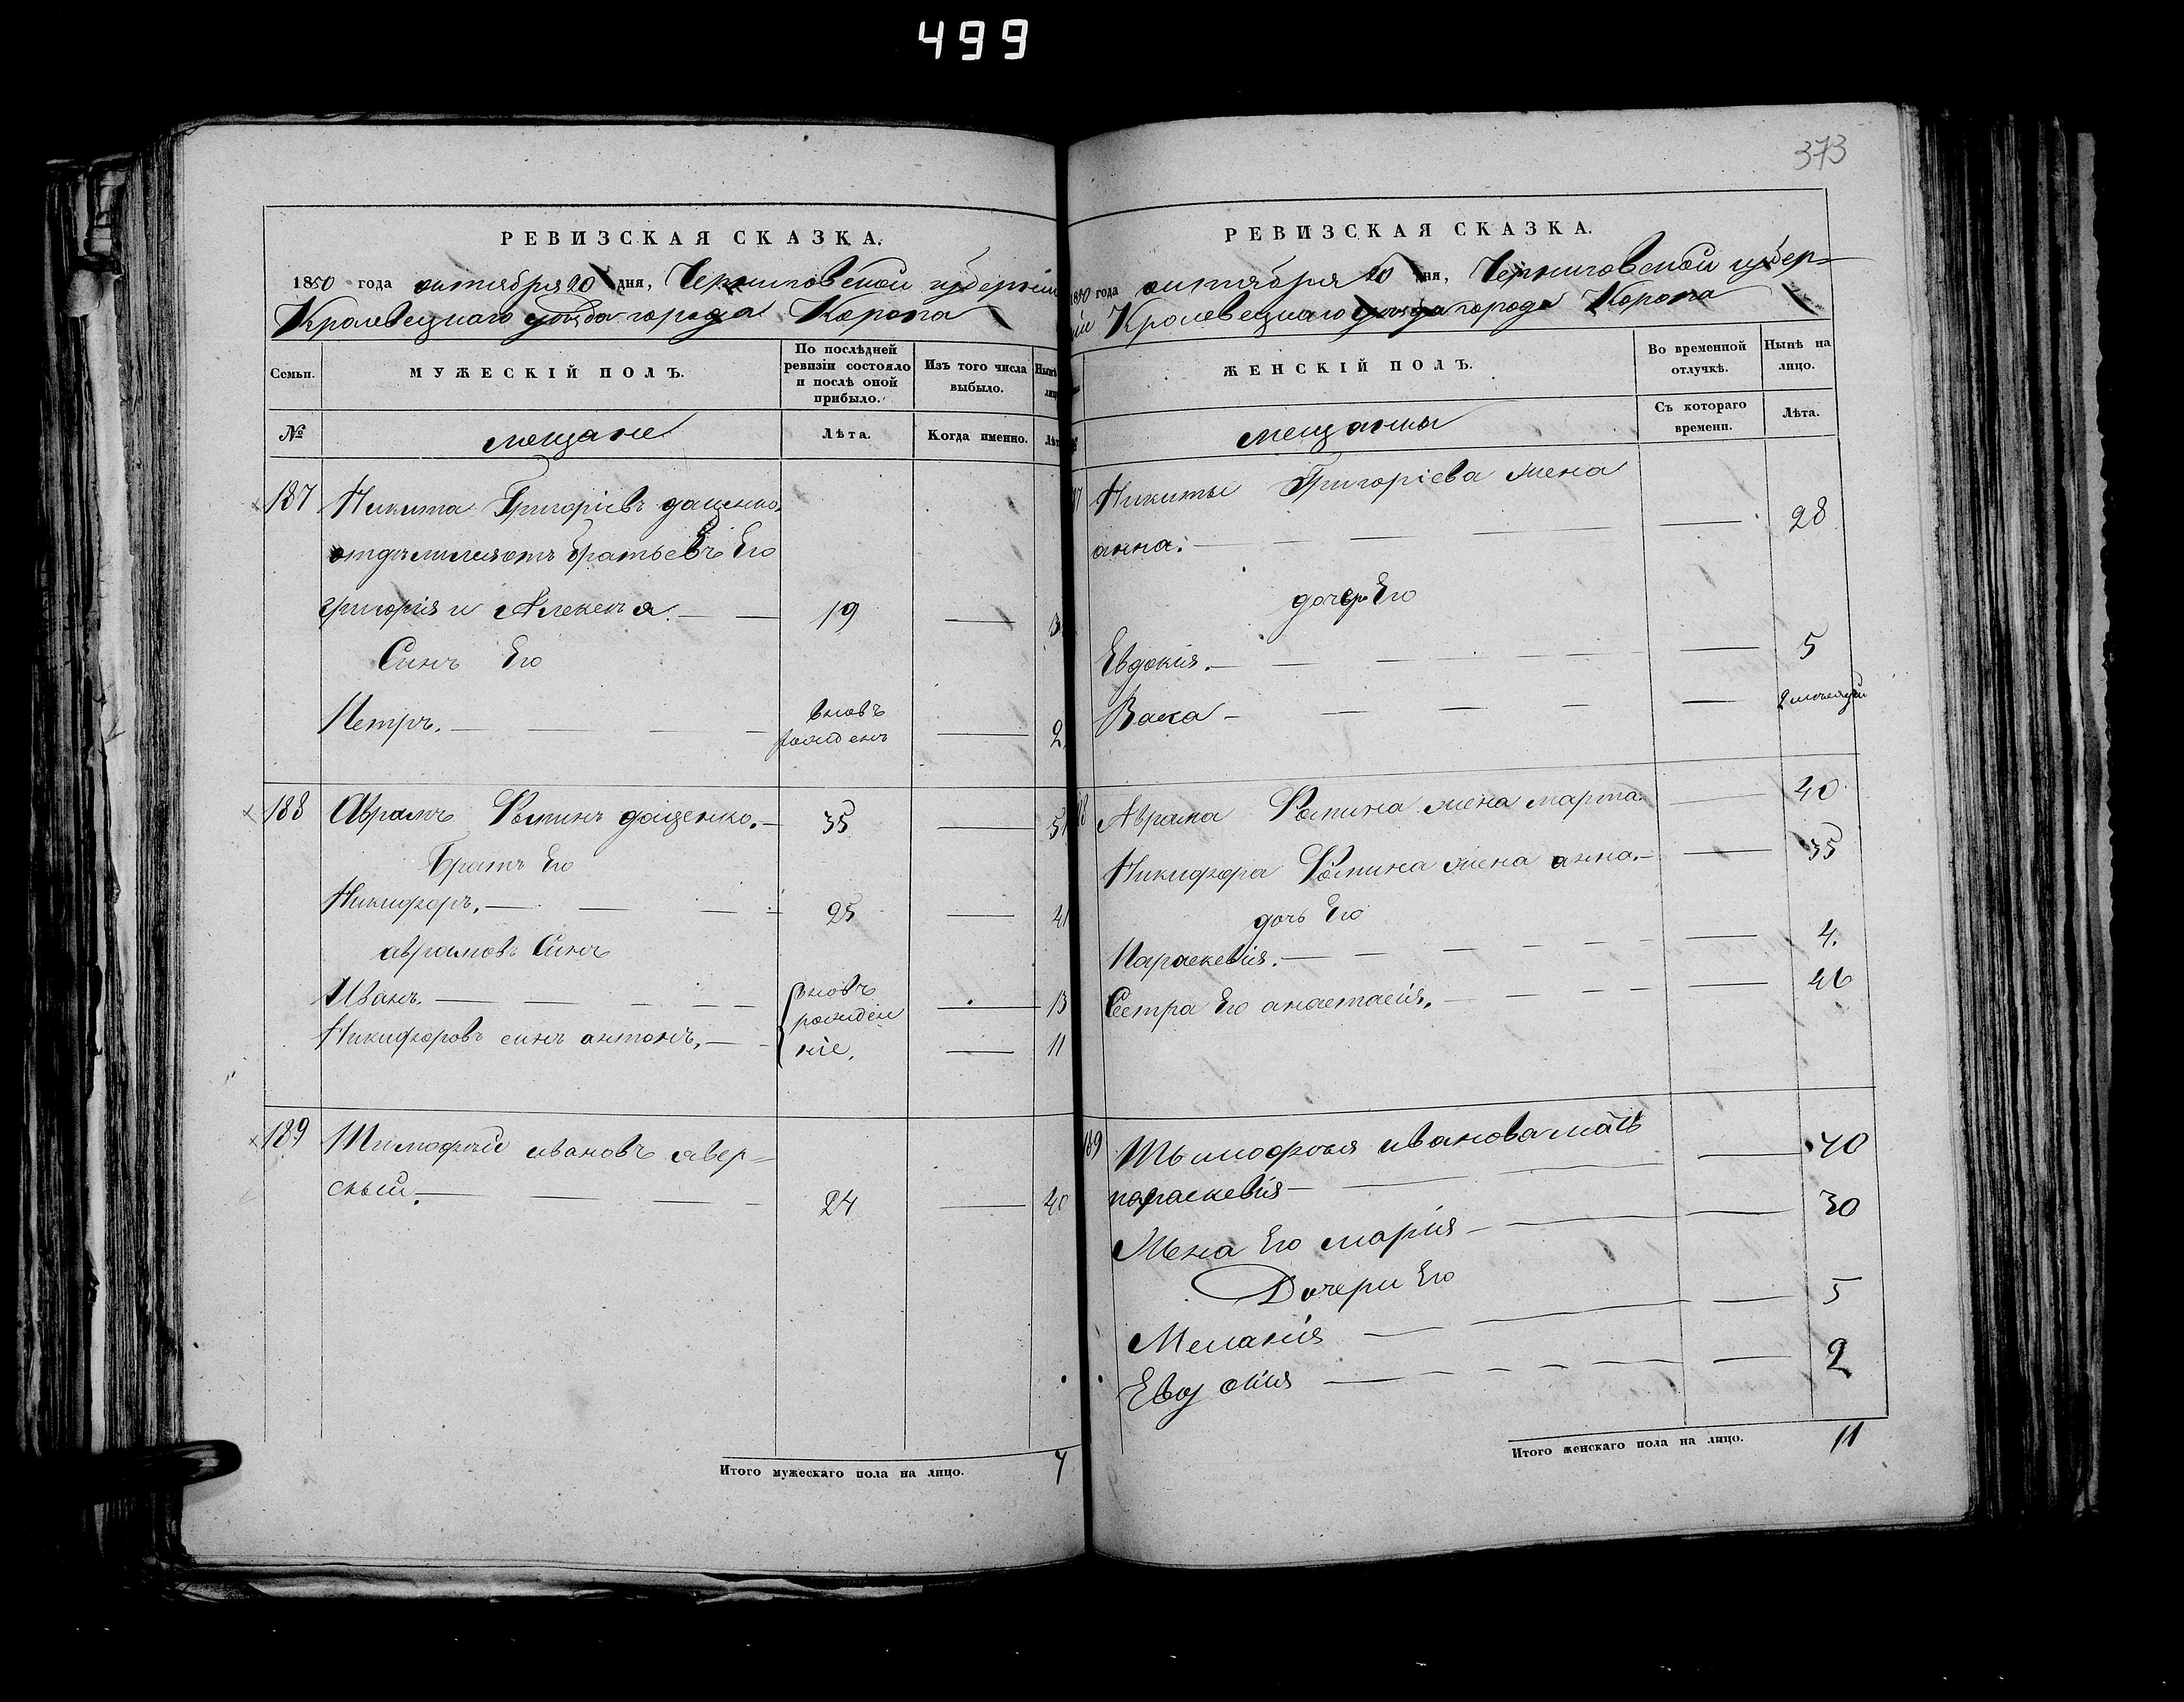 499
373
РЕВИЗСКАЯ СКАЗКА.
1850 года октября 20 дня, Черниговской губерніи
Кролевецкаго уѣзда города Коропа
Семьи.
МУЖЕСКІЙ ПОЛЪ.
По послѣдней ревизіи состояло и послѣ оной прибыло.
Изъ того числа выбыло.
№
мещане
Лѣта.
Когда именно.
187 Никита Григоріевъ дащенко.
отдѣлился отъ братьевъ Его
григорія и Алексѣя. 19
Синъ Его
Петръ. вновь рожденъ 2
188 Аврамъ Фоминъ дащенко. 35 51
Братъ Его
Никифоръ. 25 41
аврамовъ Синъ
Иванъ. вновь 13
рожден
Никифоровъ синъ антонъ, ніе. 11
189 Тимофѣй ивановъ явер-
скый. 24 40
Итого мужескаго пола на лицо. 7
РЕВИЗСКАЯ СКАЗКА.
1850 года октября 20 дня, Черниговской губер-
ніи Кролевецкаго уѣзда города Коропа
ЖЕНСКІЙ ПОЛЪ.
Во временной отлучкѣ.
Нынѣ на лицо.
мещанки
Съ котораго времени.
Лѣта.
Никиты Григоріева жена
анна. 28
дочери Его
Евдокія. 5
Васа
Аврама Фомина жена марта. 40
Никифора Фомина жена анна. 35
дочь Его
Параскевія. 4.
Сестра Его анастасія. 46
189 Тимофѣя иванова мать 70
параскевія
Жена Его марія 30
Дочери Его
Меланія 5
Евдокія 2
Итого женскаго пола на лицо. 11